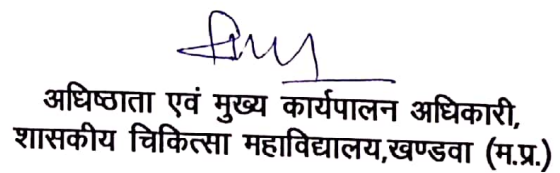 अधिष्ठाता एवं मुख्य कार्यपालन अधिकारी,
शासकीय चिकित्सा महाविद्यालय,खण्डवा (म.प्र.)